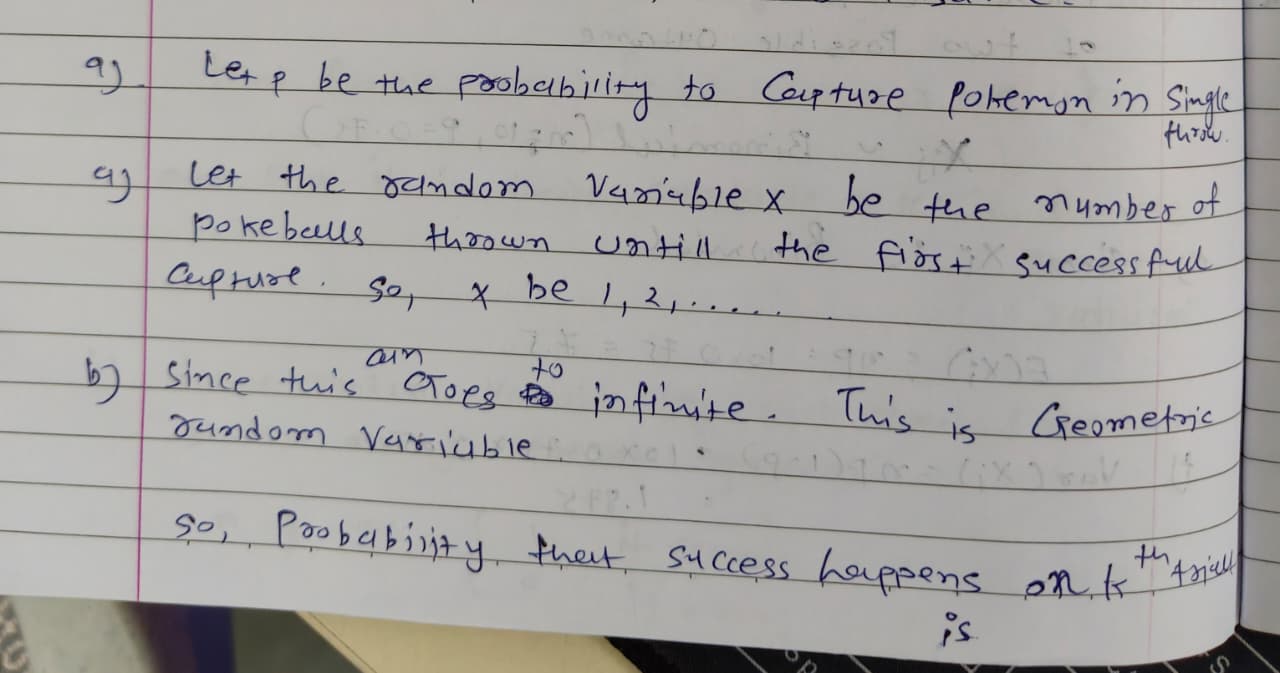 a) Let p be the probability to Capture pokemon in Single throw.
a) Let the random Variable x be the number of
pokeballs thrown untill the first successful
Capture. so, x be 1, 2, .....
b) Since this can Goes to infinite. This is Geometric
random Variable.
so, Probability that success happens on k th triall
is